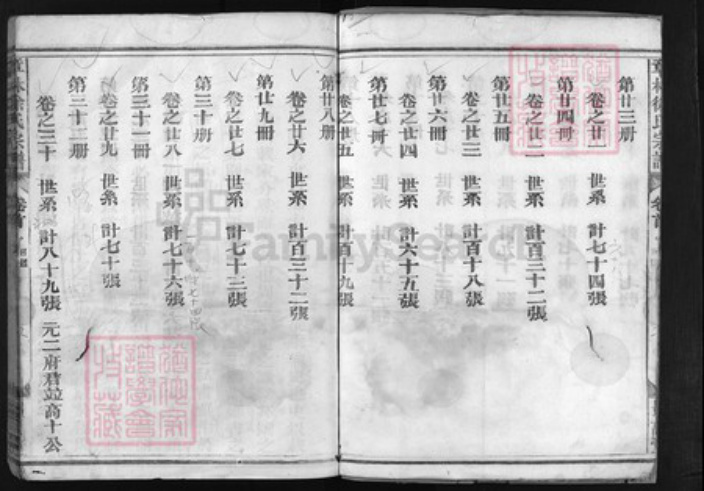 第廿三册
卷之廿一 世系 計七十四張
第廿四册
卷之廿二 世系 計百三十二張
第廿五冊
卷之廿三 世系 計百十八張
第廿六冊
卷之廿四 世系 計六十五張
第廿七冊
卷之廿五 世系 計百十九張
第廿八册
卷之廿六 世系 計百三十二張
第廿九冊
卷之廿七 世系 計七十三張
第三十册
卷之廿八 世系 計七十六張
第三十一冊
卷之廿九 世系 計七十張
第三十二册
卷之三十 世系 計八十九張 元二府君並高十公
徐氏宗譜 卷首
FamilySearch